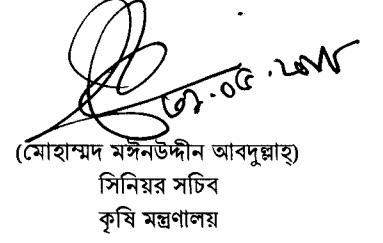 ৩১.০৫.২০১৮
(মোহাম্মদ মঈনউদ্দীন আবদুল্লাহ)
সিনিয়র সচিব
কৃষি মন্ত্রণালয়